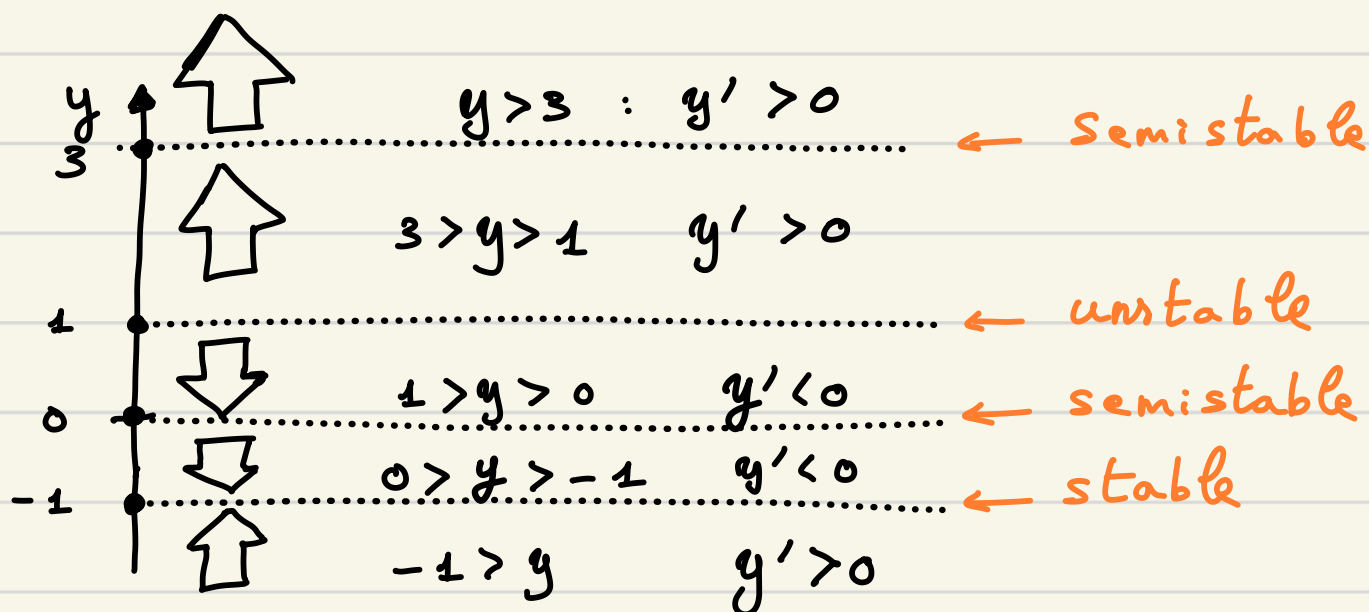 y
y > 3 : y' > 0
3 ← semistable
3 > y > 1 y' > 0
1 ← unstable
1 > y > 0 y' < 0
0 ← semistable
0 > y > -1 y' < 0
-1 ← stable
-1 > y y' > 0